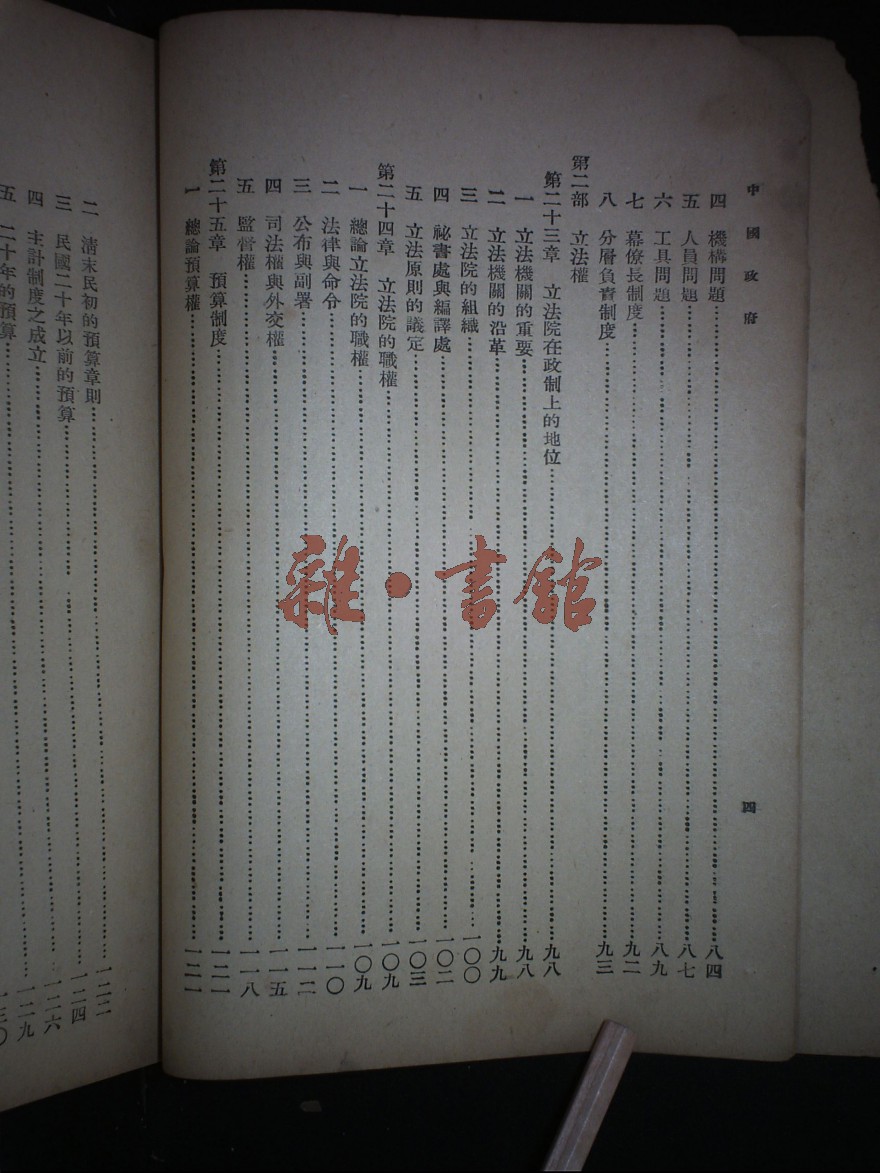 中國政府
四
四 機構問題 八四
五 人員問題 八七
六 工具問題 八九
七 幕僚長制度 九二
八 分層負責制度 九三
第二部 立法權
第二十三章 立法院在政制上的地位 九八
一 立法機關的重要 九八
二 立法機關的沿革 九九
三 立法院的組織 一〇〇
四 祕書處與編譯處 一〇二
五 立法原則的議定 一〇三
第二十四章 立法院的職權 一〇九
一 總論立法院的職權 一〇九
二 法律與命令 一一〇
三 公布與副署 一一二
四 司法權與外交權 一一五
五 監督權 一一八
第二十五章 預算制度 一二一
一 總論預算權 一二一
二 清末民初的預算章則 一二二
三 民國二十年以前的預算 一二四
四 主計制度之成立 一二六
五 二十年的預算 一二九
一三〇
雜·書館